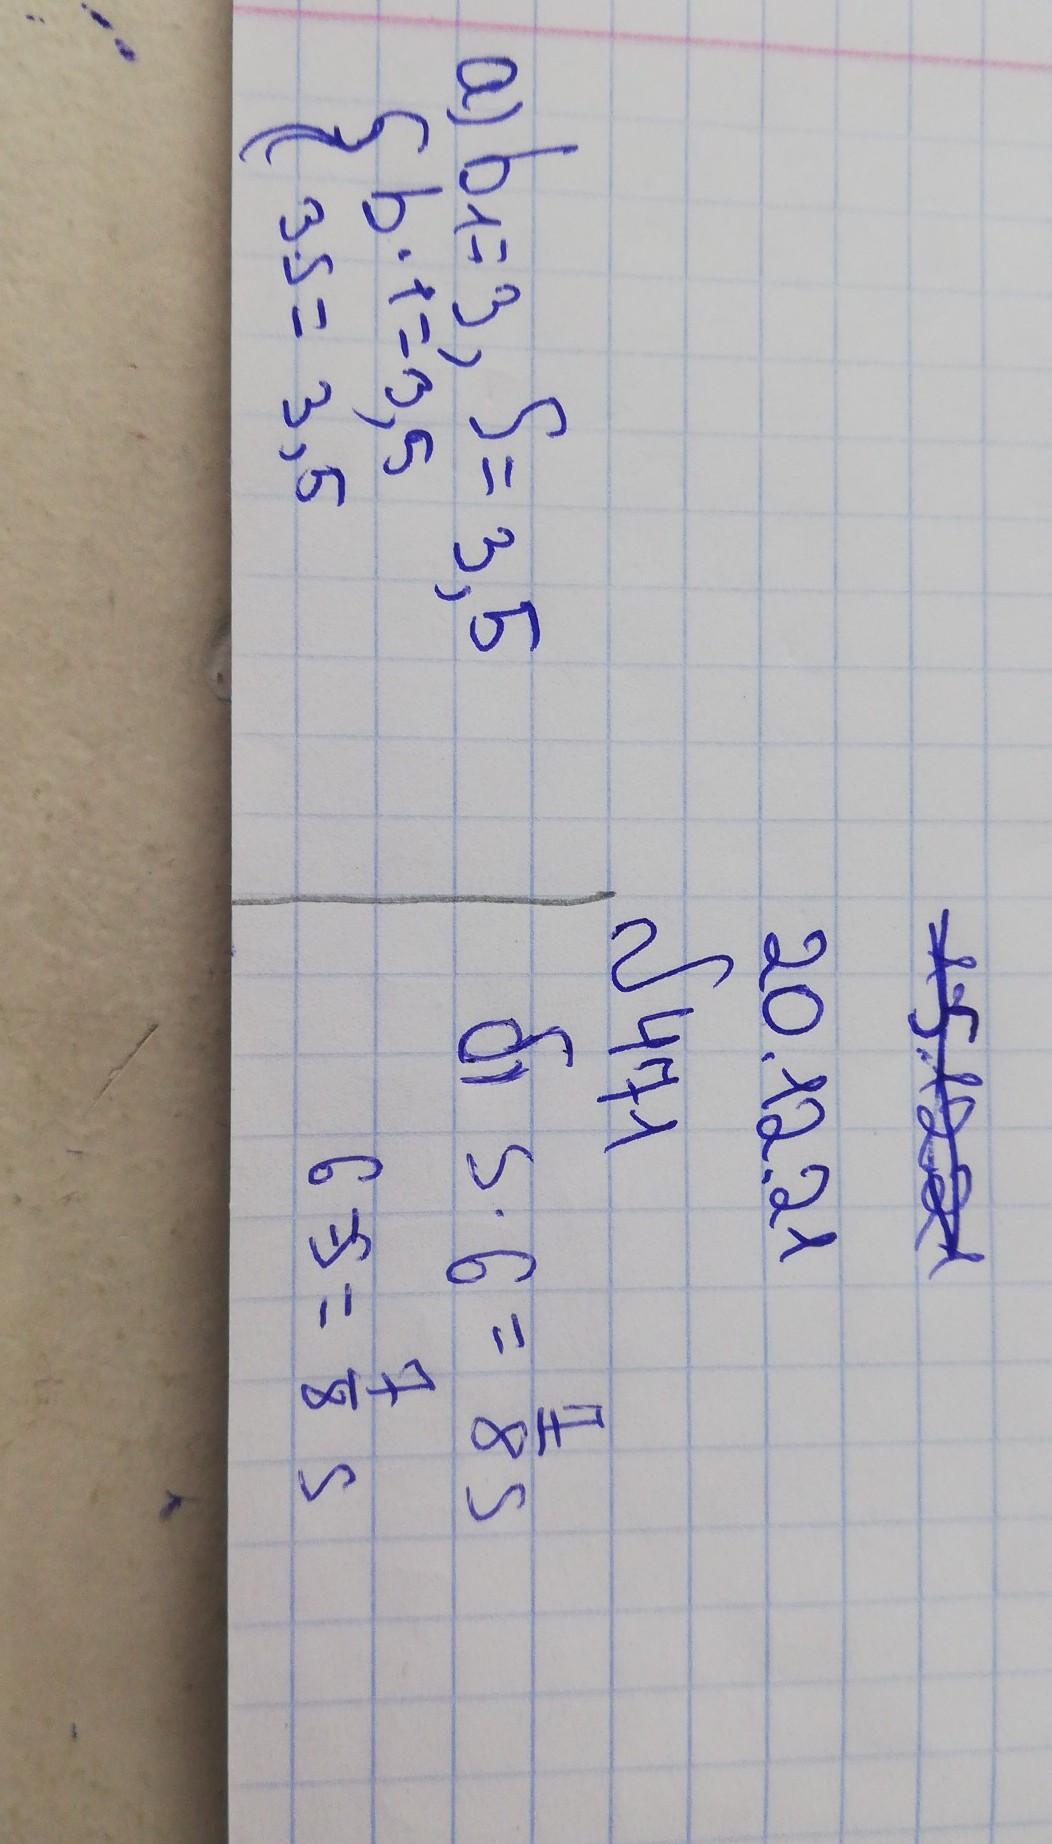 15.12.21
20.12.21
√471
a) b1=3, S=3,5
{ b·1=3,5
3·S= 3,5
б) S·6 = 7/8 S
6 S = 7/8 S